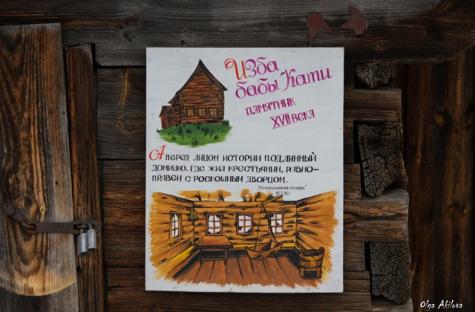 Изба
бабы Кати
памятник
XVII века
А перед лицом истории подлинный
домишко, где жил крестьянин, равно-
правен с роскошным дворцом.
"Комсомольская правда"
Olga Akilova